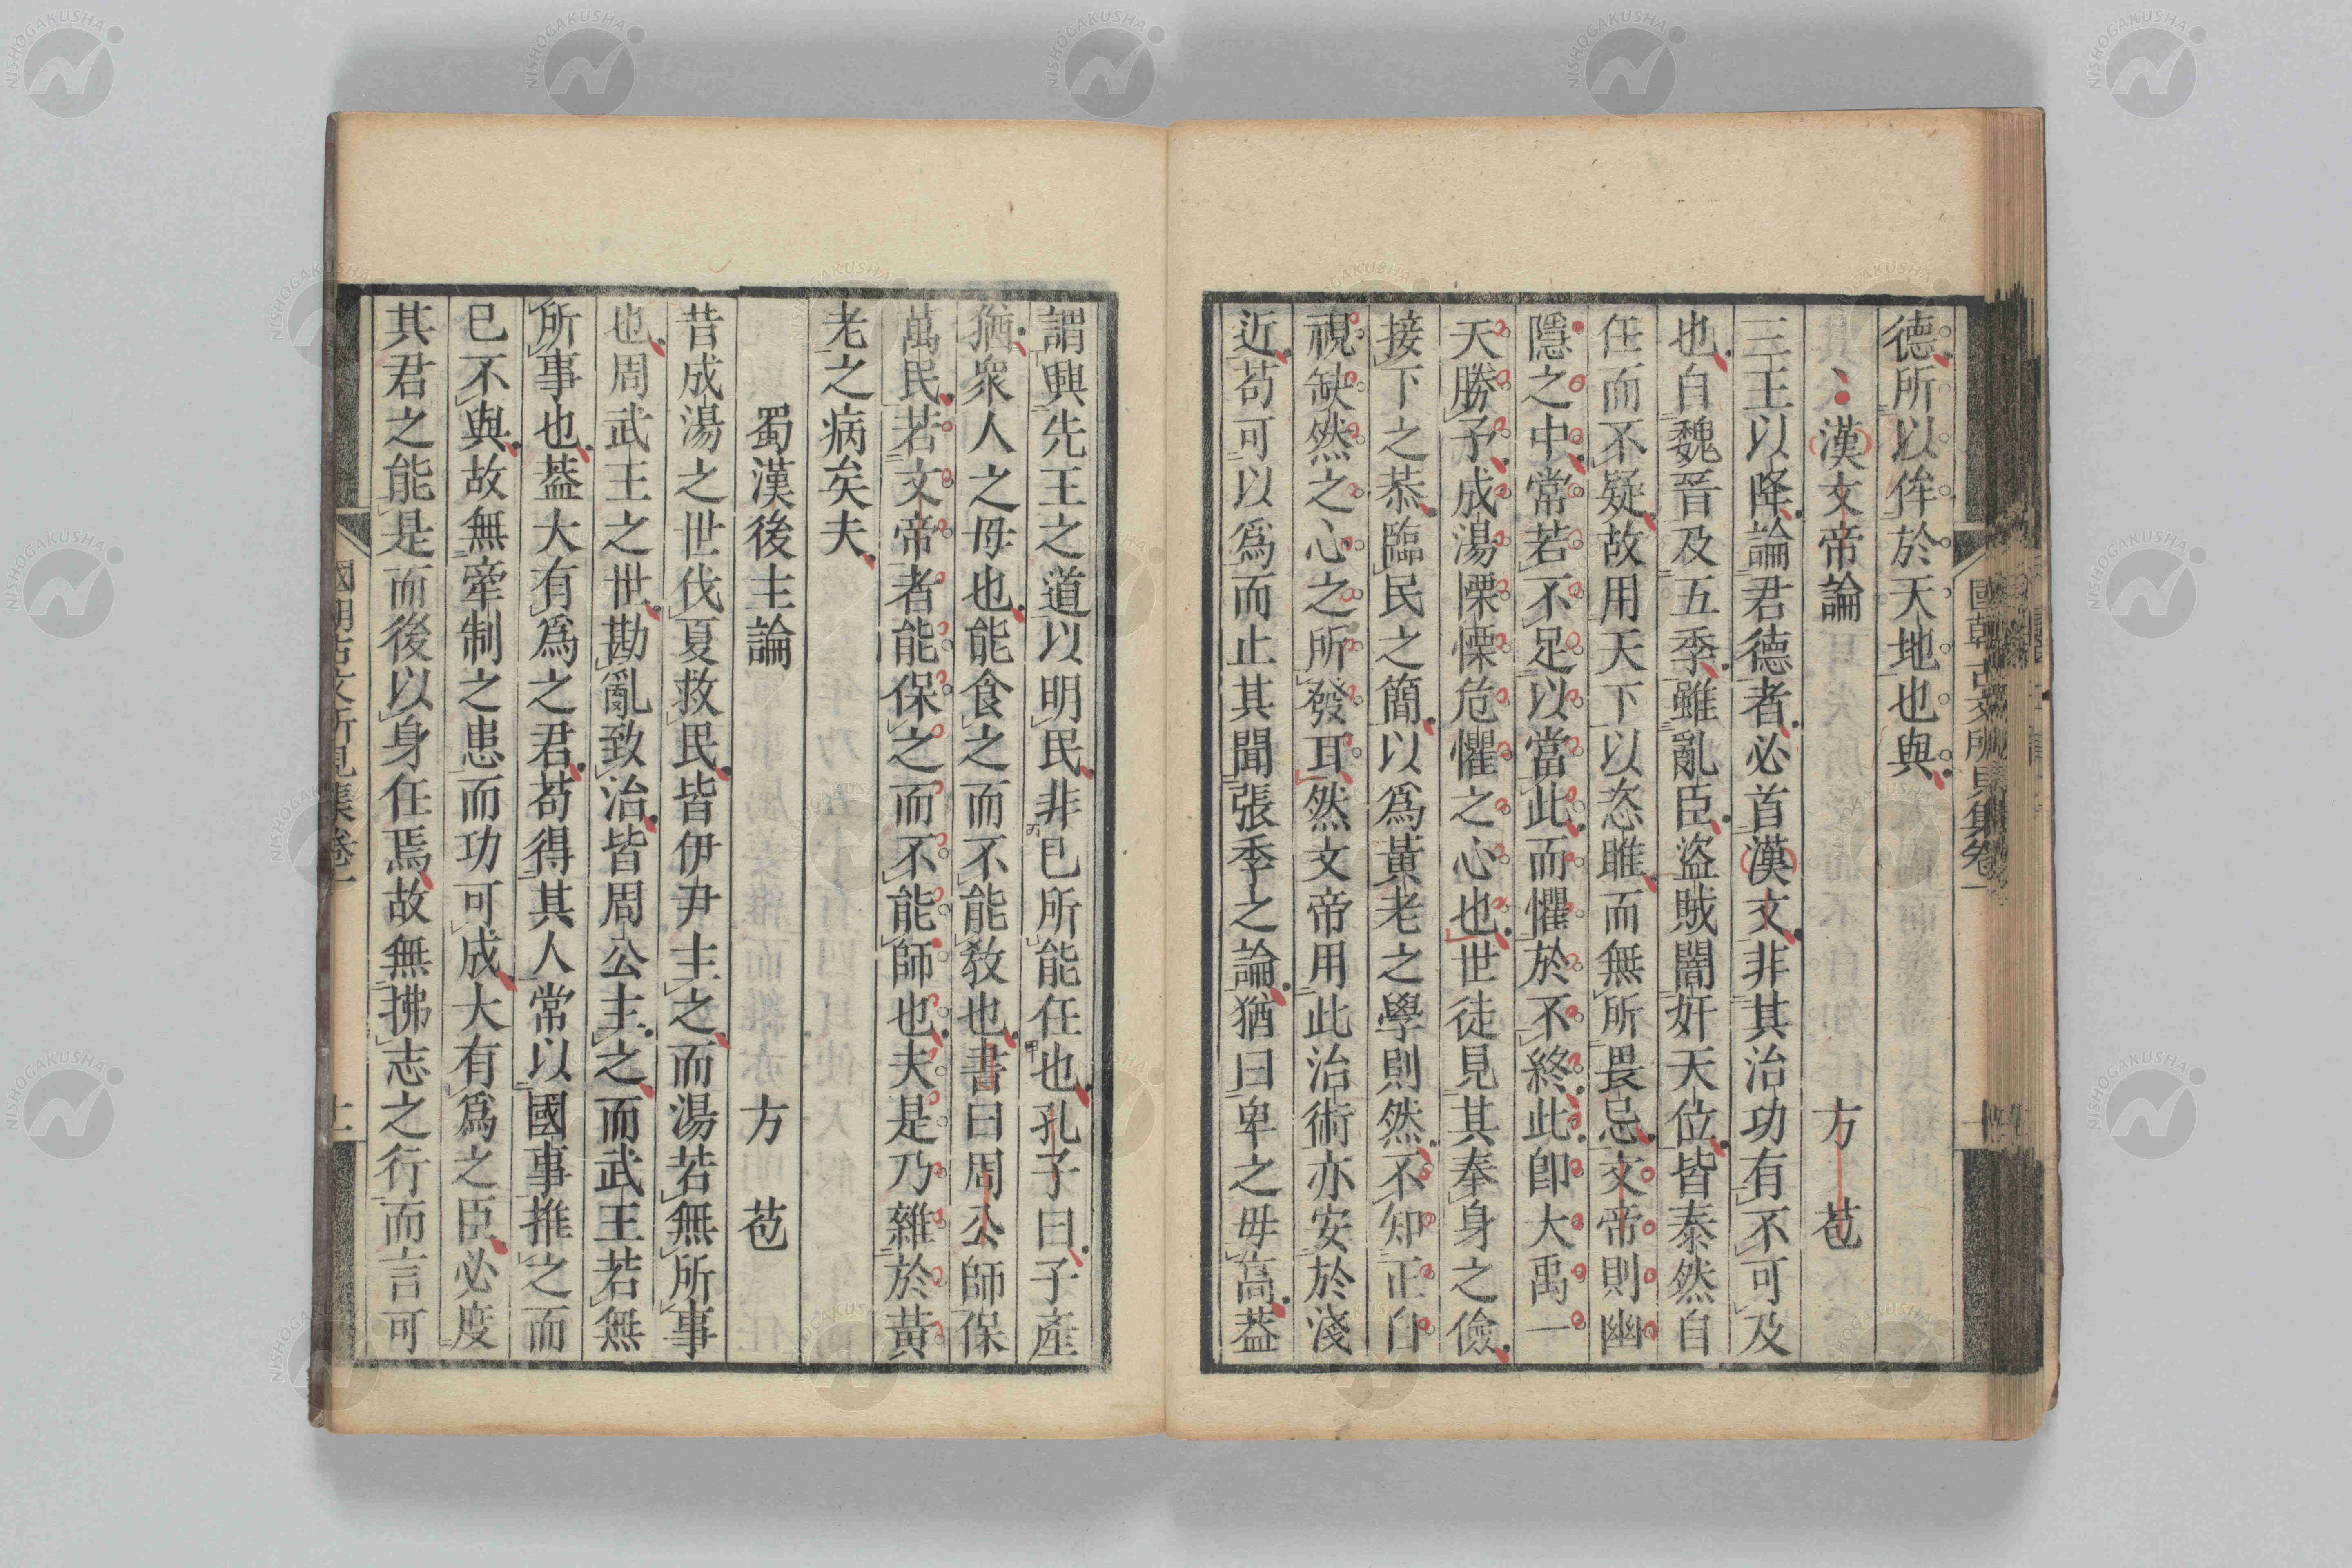 德所以侔於天地也與
漢文帝論 方 苞
三王以降論君德者必首漢文非其治功有不可及
也自魏晉及五季雖亂臣盜賊闇奸天位皆泰然自
任而不疑故用天下以恣睢而無所畏忌文帝則幽
隱之中常若不足以當此而懼於不終此卽大禹一
天勝予成湯慄慄危懼之心也世徒見其奉身之儉
接下之恭臨民之簡以爲黃老之學則然不知正自
視缺然之心之所發耳然文帝用此治術亦安於淺
近苟可以爲而止其聞張季之論猶曰卑之毋高葢
謂興先王之道以明民非已所能任也孔子曰子產
猶衆人之母也能食之而不能敎也書曰周公師保
萬民若文帝者能保之而不能師也夫是乃雜於黃
老之病矣夫
蜀漢後主論 方 苞
昔成湯之世伐夏救民皆伊尹主之而湯若無所事
也周武王之世勘亂致治皆周公主之而武王若無
所事也葢大有爲之君苟得其人常以國事推之而
已不與故無牽制之患而功可成大有爲之臣必度
其君之能是而後以身任焉故無拂志之行而言可
國朝古文所見集卷一
NISHOGAKUSHA